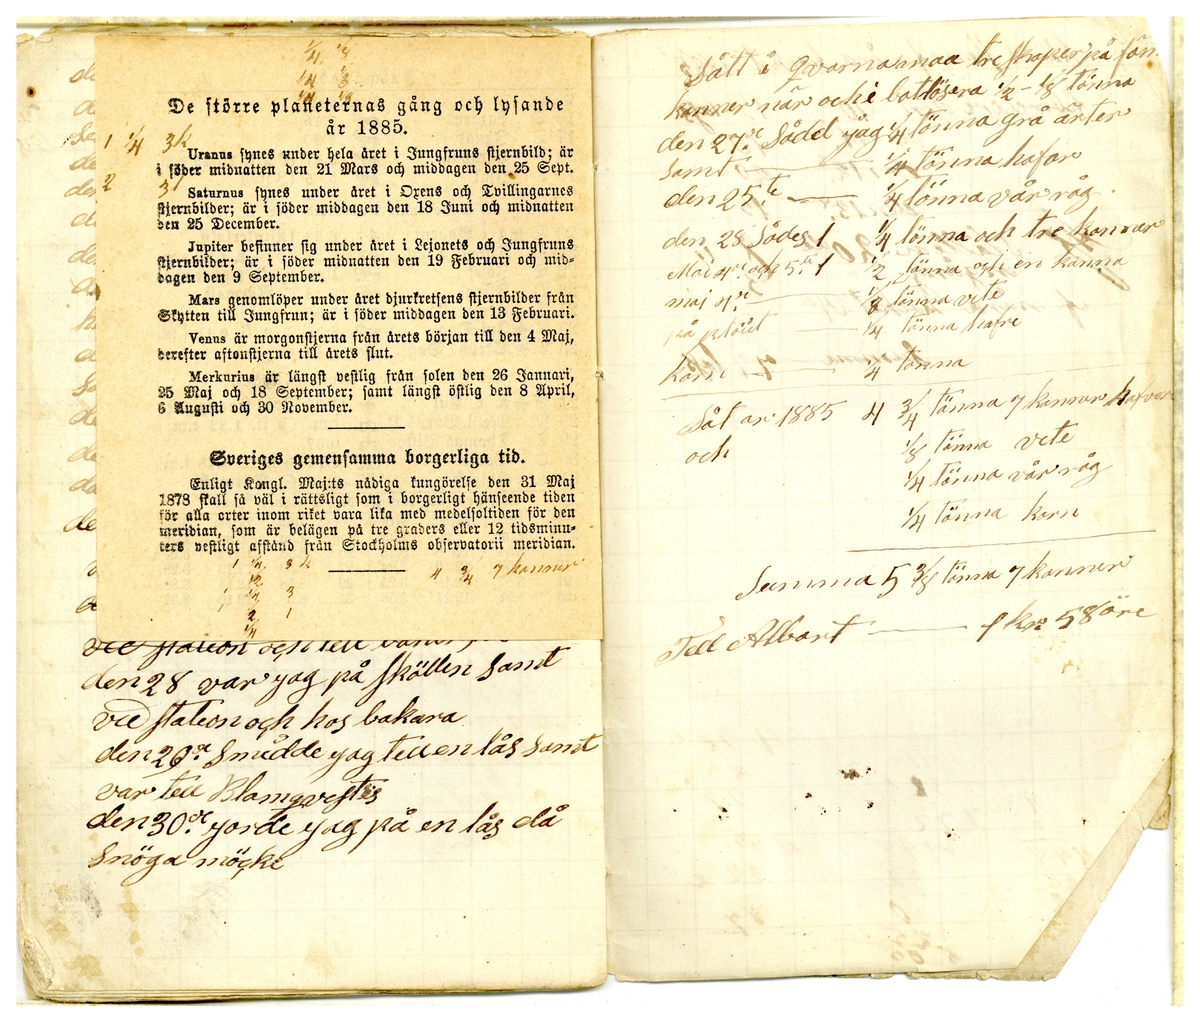 1/4 1/8
1/4 3
De större planeternas gång och lysande
år 1885.
1 1/4 3k
Uranus synes under hela året i Jungfruns stjernbild; är
i söder midnatten den 21 Mars och middagen den 25 Sept.
2 31
Saturnus synes under året i Oxens och Tvillingarnes
stjernbilder; är i söder middagen den 18 Juni och midnatten
den 25 December.
Jupiter befinner sig under året i Lejonets och Jungfruns
stjernbilder; är i söder midnatten den 19 Februari och mid-
dagen den 9 September.
Mars genomlöper under året djurkretsens stjernbilder från
Skytten till Jungfrun; är i söder middagen den 13 Februari.
Venus är morgonstjerna från årets början till den 4 Maj,
derefter aftonstjerna till årets slut.
Merkurius är längst vestlig från solen den 26 Januari,
25 Maj och 18 September; samt längst östlig den 8 April,
6 Augusti och 30 November.
Sveriges gemensamma borgerliga tid.
Enligt Kongl. Maj:ts nådiga kungörelse den 31 Maj
1878 skall så väl i rättsligt som i borgerligt hänseende tiden
för alla orter inom riket vara lika med medelsoltiden för den
meridian, som är belägen på tre graders eller 12 tidsminu-
ters vestligt afstånd från Stockholms observatorii meridian.
1 1/4 3 k 4 3/4 7 kannor
1/2
1 1/2 3
2 1
1/4
ved station och tell
den 28 var yag på skötten samt
ved station och hos bakara
den 29de Smidde yag tell en lås samt
var tell Blamqvestes
den 30de yorde yag på en lås då
snöga möcke
Sått i qvarnamaa tre skaper på fön
kannor när och i botlösera 1/2 - 1/8 tönna
den 27de Sådd yag 1/4 tönna grå ärter
samt 1/4 tönna hafar
den 25te 1/4 tönna vår råg
den 28 Sådes 1 1/4 tönna och tre kannor
Mai 4de och 5te 1 1/2 tönna och en kanna
maj 4de 1/8 tönna vete
på plöiet 1/4 tönna hafre
korn 1/4 tönna
Såt år 1885 4 3/4 tönna 7 kannor hafver
och 1/8 tönna vete
1/4 tönna vår råg
1/4 tönna korn
Summa 5 3/8 tönna 7 kannor
Tell Albart 1 kr 58 öre